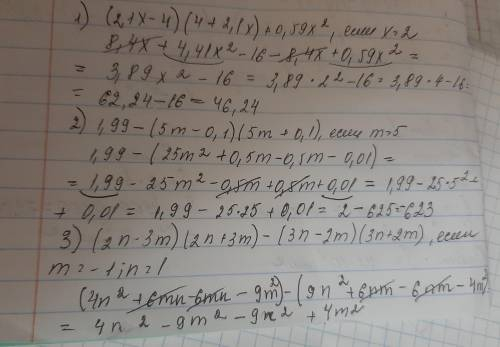 1) (2,1x-4)(4+2,1x)+0,59x², если x=2
8,4x + 4,41x² - 16 - 8,4x + 0,59x² =
= 3,89x² - 16 = 3,89 · 2² - 16 = 3,89 · 4 - 16 =
= 62,24 - 16 = 46,24
2) 1,99 - (5m - 0,1)(5m + 0,1), если m=5
1,99 - (25m² + 0,5m - 0,5m - 0,01) =
= 1,99 - 25m² - 0,5m + 0,5m + 0,01 = 1,99 - 25·5² +
+ 0,01 = 1,99 - 25·25 + 0,01 = 2 - 625 = 623
3) (2n - 3m)(2n + 3m) - (3n - 2m)(3n + 2m), если
m = -1; n = 1
(4n² + 6mn - 6mn - 9m²) - (9n² + 6nm - 6nm - 4m²)
= 4n² - 9m² - 9n² + 4m²